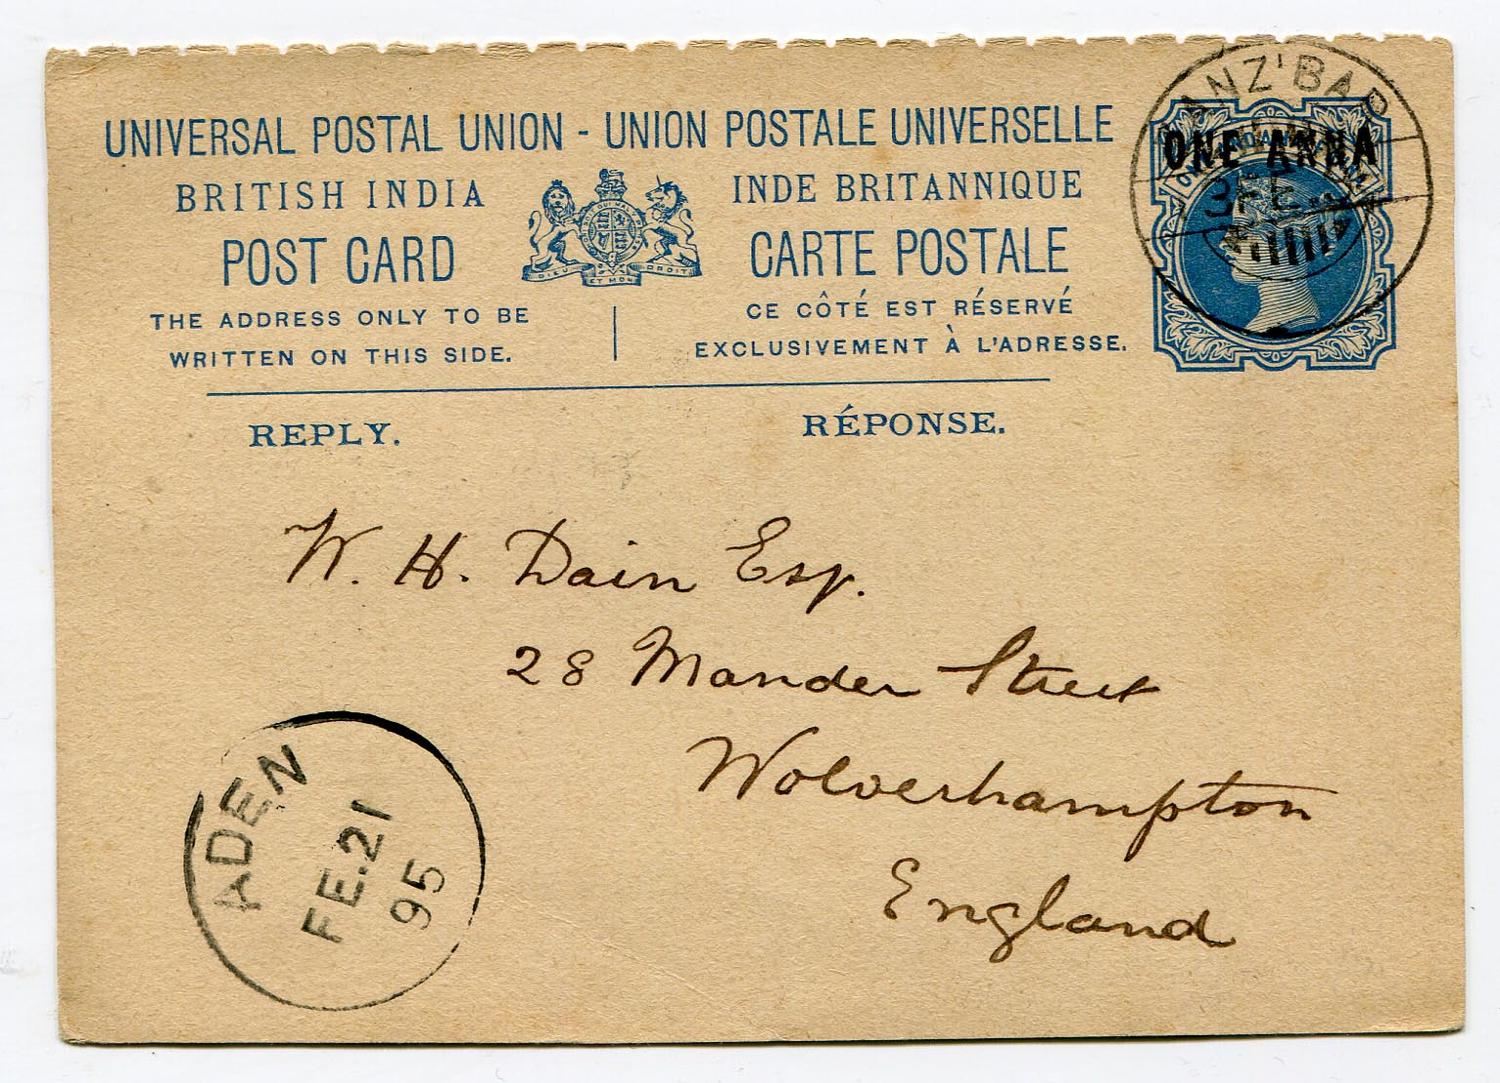 UNIVERSAL POSTAL UNION - UNION POSTALE UNIVERSELLE
BRITISH INDIA
INDE BRITANNIQUE
POST CARD
CARTE POSTALE
THE ADDRESS ONLY TO BE
WRITTEN ON THIS SIDE.
CE CÔTÉ EST RÉSERVÉ
EXCLUSIVEMENT À L'ADRESSE.
DIEU ET MON DROIT
ZANZ'BAR
ONE ANNA
REPLY.
RÉPONSE.
W. H. Dain Esq.
28 Mander Street
Wolverhampton
England
ADEN
FE.21
95